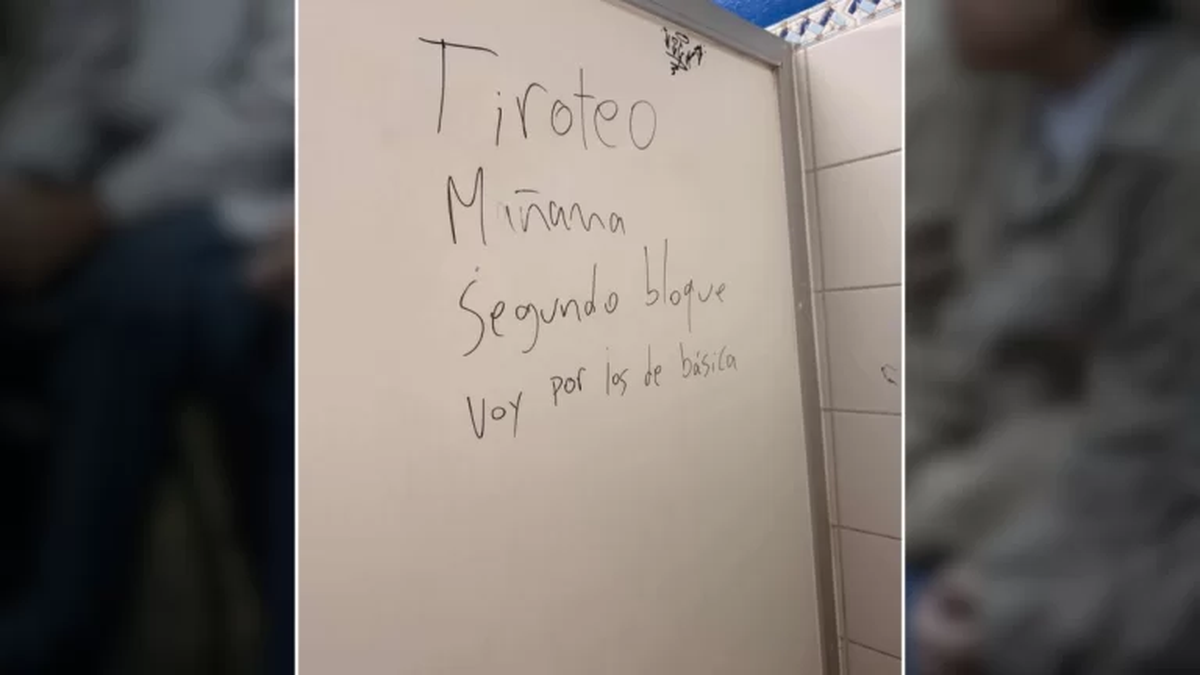 Tiroteo
Mañana
Segundo bloque
Voy por los de básica